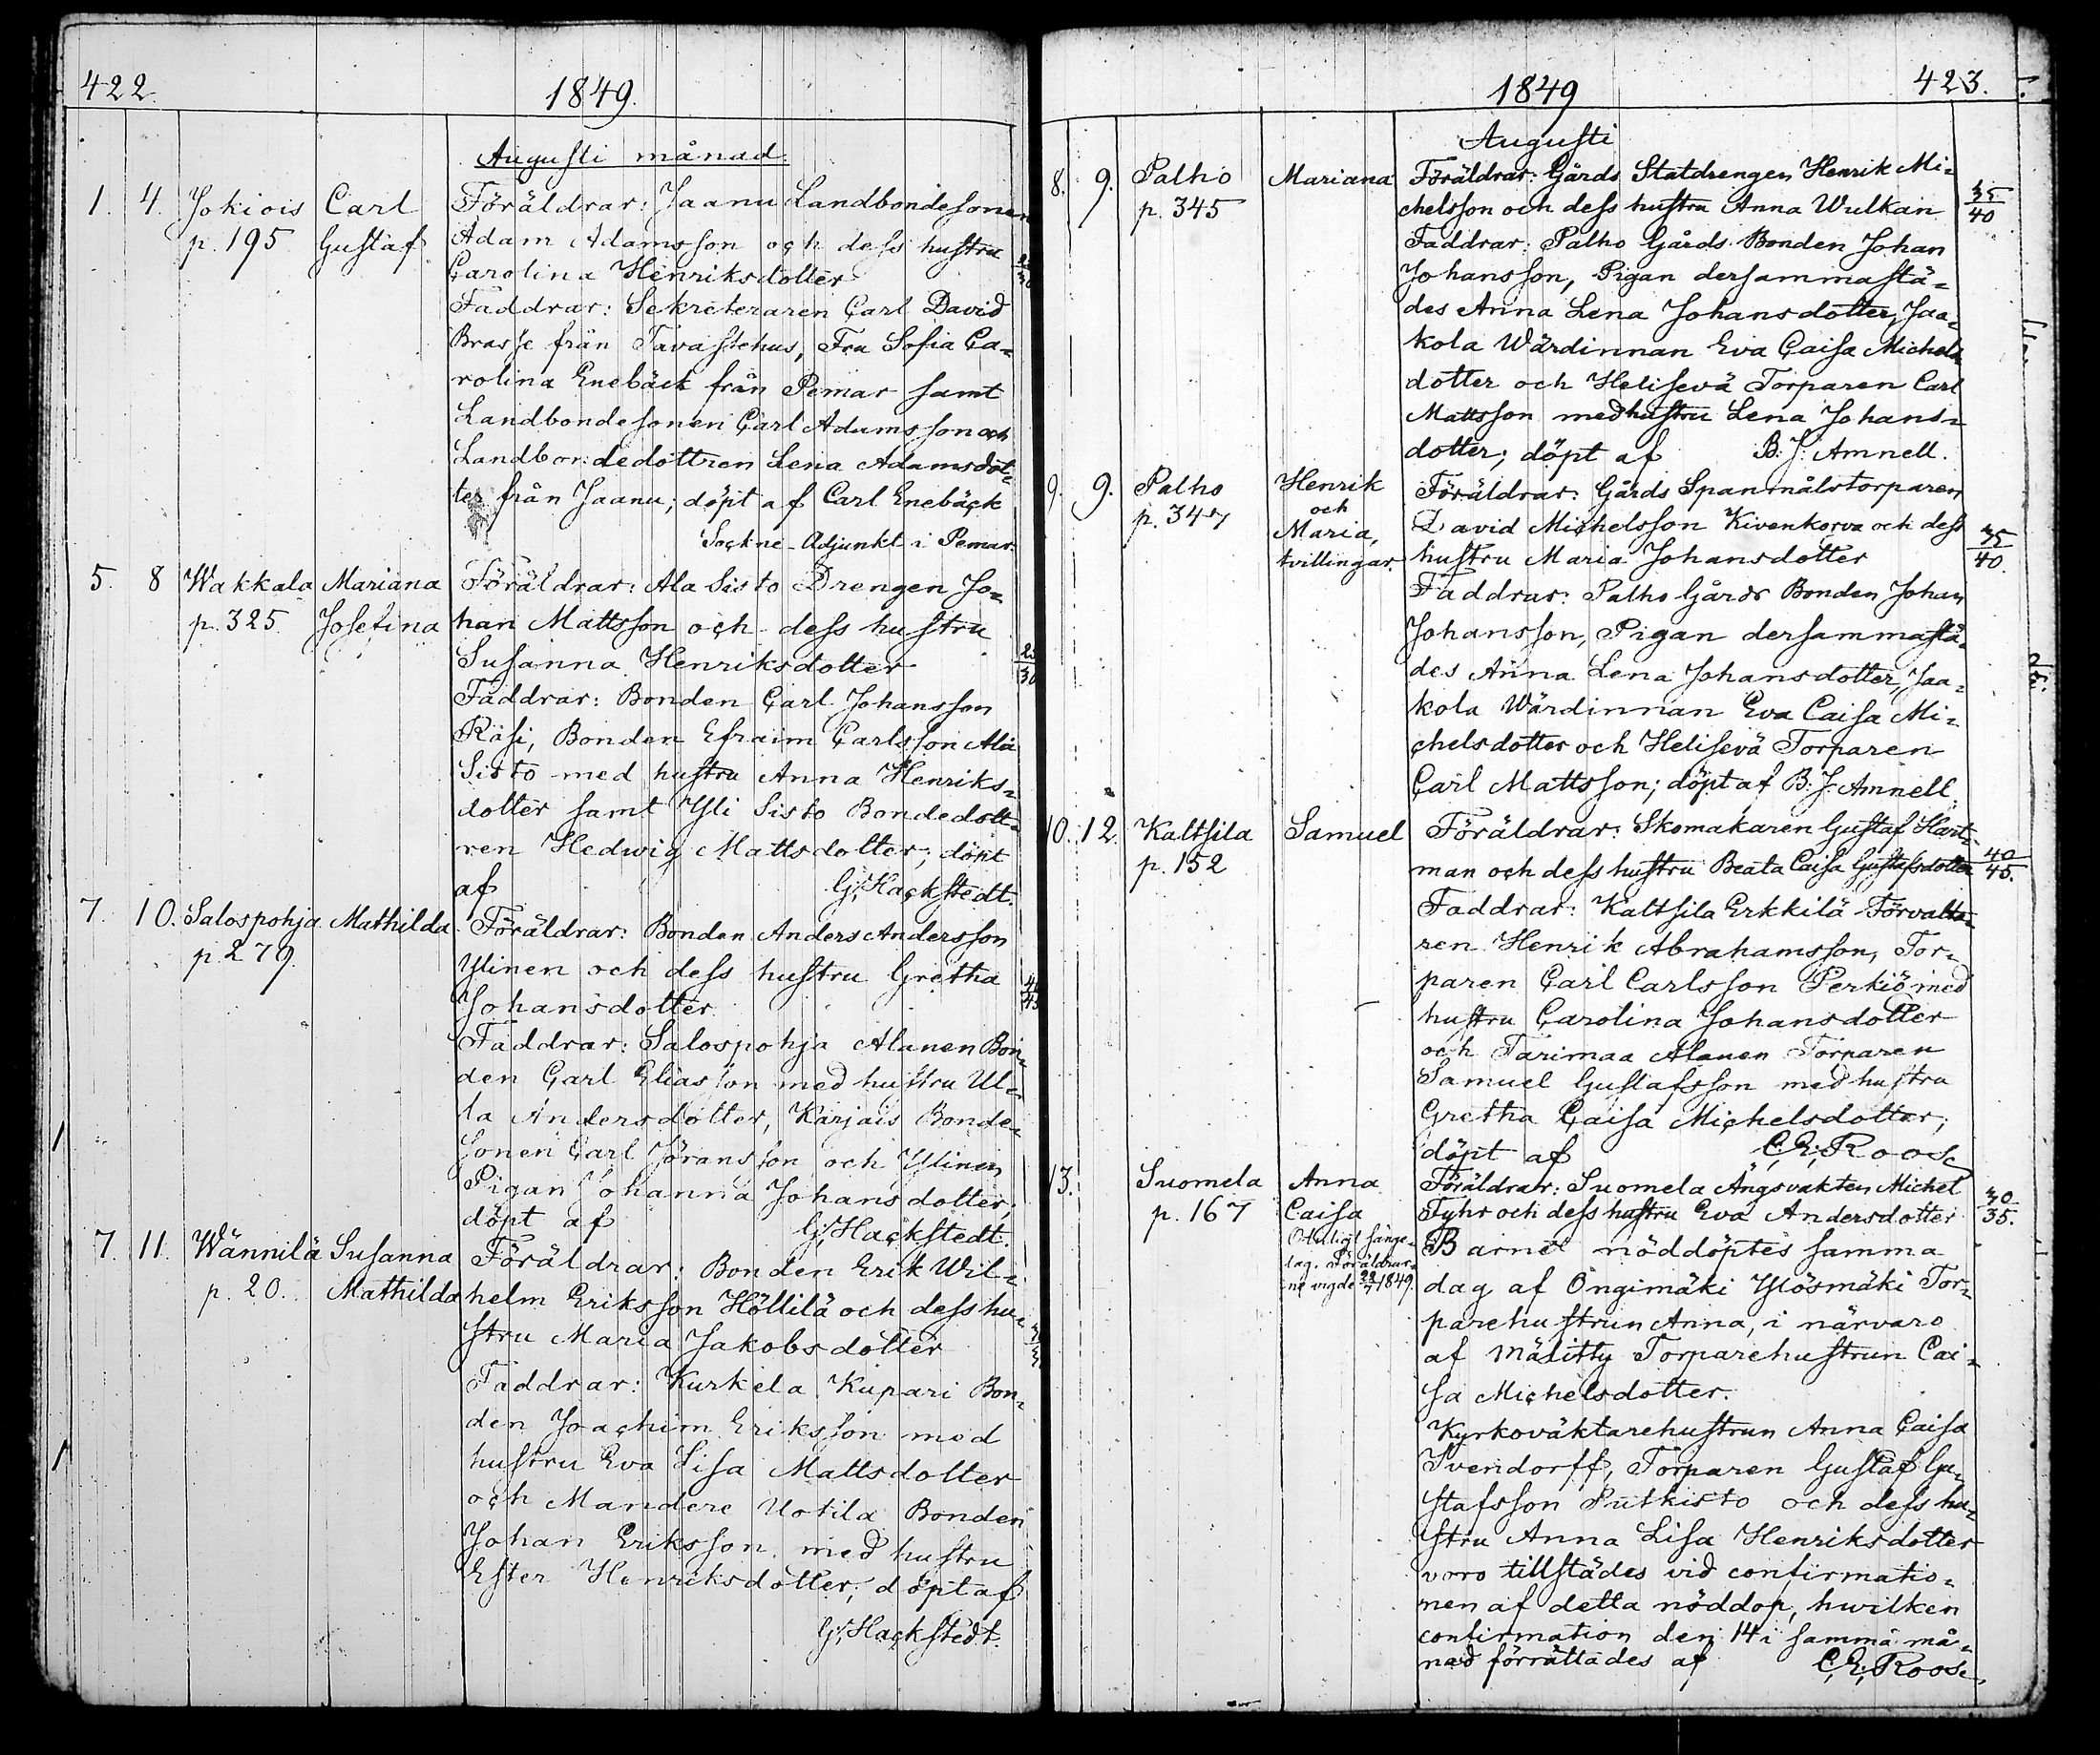 422.
1849.
Augusti månad.
1. 4. Jokiois Carl Föräldrar: Jaanu Landbondesonen
p. 195 Gustaf Adam Adamsson och dess hustru
Carolina Henriksdotter
Faddrar: Sekreteraren Carl David
Brasse från Tavastehus, Fru Sofia Ca=
rolina Enebäck från Pemar samt
Landbondesonen Carl Adamsson och
Landbondedottren Lena Adamsdot=
ter från Jaanu; döpt af Carl Enebäck
Sockne-Adjunkt i Pemar.
5. 8 Wakkala Mariana Föräldrar: Ala Sisto Drengen Jo=
p. 325. Josefina han Mattsson och dess hustru
Susanna Henriksdotter
Faddrar: Bonden Carl Johansson
Räsi, Bonden Efraim Carlsson Ala
Sisto med hustru Anna Henriks=
dotter samt Yli Sisto Bondedott=
ren Hedwig Mattsdotter; döpt
af G. Hackstedt.
7. 10. Salospohja Mathilda Föräldrar: Bonden Anders Andersson
p. 279. Ylinen och dess hustru Gretha
Johansdotter
Faddrar: Salospohja Alanen Bon=
den Carl Eliasson med hustru Ul=
la Andersdotter, Karjais Bonde=
sonen Carl Jöransson och Ylinen
Pigan Johanna Johansdotter;
döpt af G. Hackstedt.
7. 11. Wännilä Susanna Föräldrar: Bonden Erik Wil=
p. 20. Mathilda helm Eriksson Höllilä och dess hu=
stru Maria Jakobsdotter
Faddrar: Kurkela Kupari Bon=
den Joachim Eriksson med
hustru Eva Lisa Mattsdotter
och Mandere Uotila Bonden
Johan Eriksson med hustru
Ester Henriksdotter; döpt af
G. Hackstedt.
1849
423.
Augusti
8. 9. Palho Mariana Föräldrar: Gårds Statdrengen Henrik Mi= 35/40
p. 345 chelsson och dess hustru Anna Wulkan
Faddrar: Palho Gårds Bonden Johan
Johansson, Pigan dersammastä=
des Anna Lena Johansdotter, Jaa=
kola Wärdinnan Eva Caisa Michels
dotter och Helisevä Torparen Carl
Mattsson med hustru Lena Johans=
dotter; döpt af B. J. Amnell.
9. 9. Palho Henrik Föräldrar: Gårds Spanmålstorparen
p. 347 och
Maria, David Michelsson Kivenkorva och dess 35/40.
tvillingar. hustru Maria Johansdotter
Faddrar: Palho Gårds Bonden Johan
Johansson, Pigan dersammastä=
des Anna Lena Johansdotter, Jaa=
kola Wärdinnan Eva Caisa Mi=
chelsdotter och Helisevä Torparen
Carl Mattsson; döpt af B. J. Amnell
10. 12. Kaltsila Samuel Föräldrar: Skomakaren Gustaf Hart=
p. 152 man och dess hustru Beata Caisa Gustafsdotter 40/45.
Faddrar: Kaltsila Erkkilä Förvalta=
ren Henrik Abrahamsson, Tor=
paren Carl Carlsson Perkiö med
hustru Carolina Johansdotter
och Tarimaa Alanen Torparen
Samuel Gustafsson med hustru
Gretha Caisa Michelsdotter;
döpt af C. E. Roos
13. Suomela Anna Föräldrar: Suomela Ängsvakten Michel 30/35.
p. 167 Caisa Tyhr och dess hustru Eva Andersdotter
Otidigt sänge=
lag. Föräldrar=
ne vigde 22/7 1849.
Barnet nöddöptes samma
dag af Öngimäki Ylösmäki Tor=
parehustrun Anna, i närvaro
af Mälitty Torparehustrun Cai=
sa Michelsdotter.
Kyrkoväktarehustrun Anna Caisa
Svendorff, Torparen Gustaf Gu=
stafsson Putkisto och dess hu=
stru Anna Lisa Henriksdotter
voro tillstädes vid confirmatio=
nen af detta nöddop, hwilken
confirmation den 14 i samma må=
nad förrättades af C. E. Roos